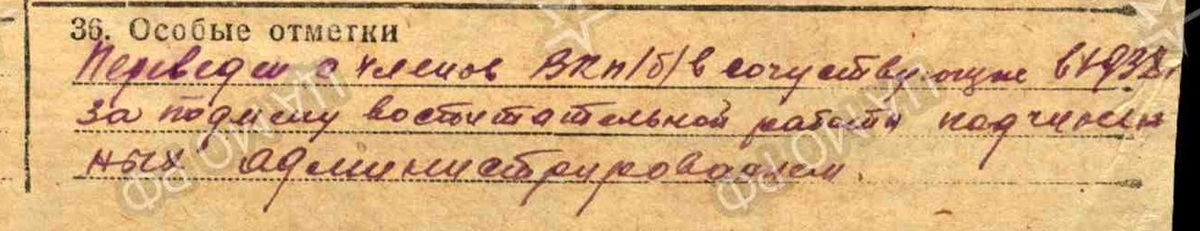 36. Особые отметки
Переведен с членов ВКП/б/ в сочуствующие в 1938г.
за подмену воспитательной работы подчинен
ных администрированием.
ЦАМО РФ
ЦАМО РФ
ЦАМО РФ